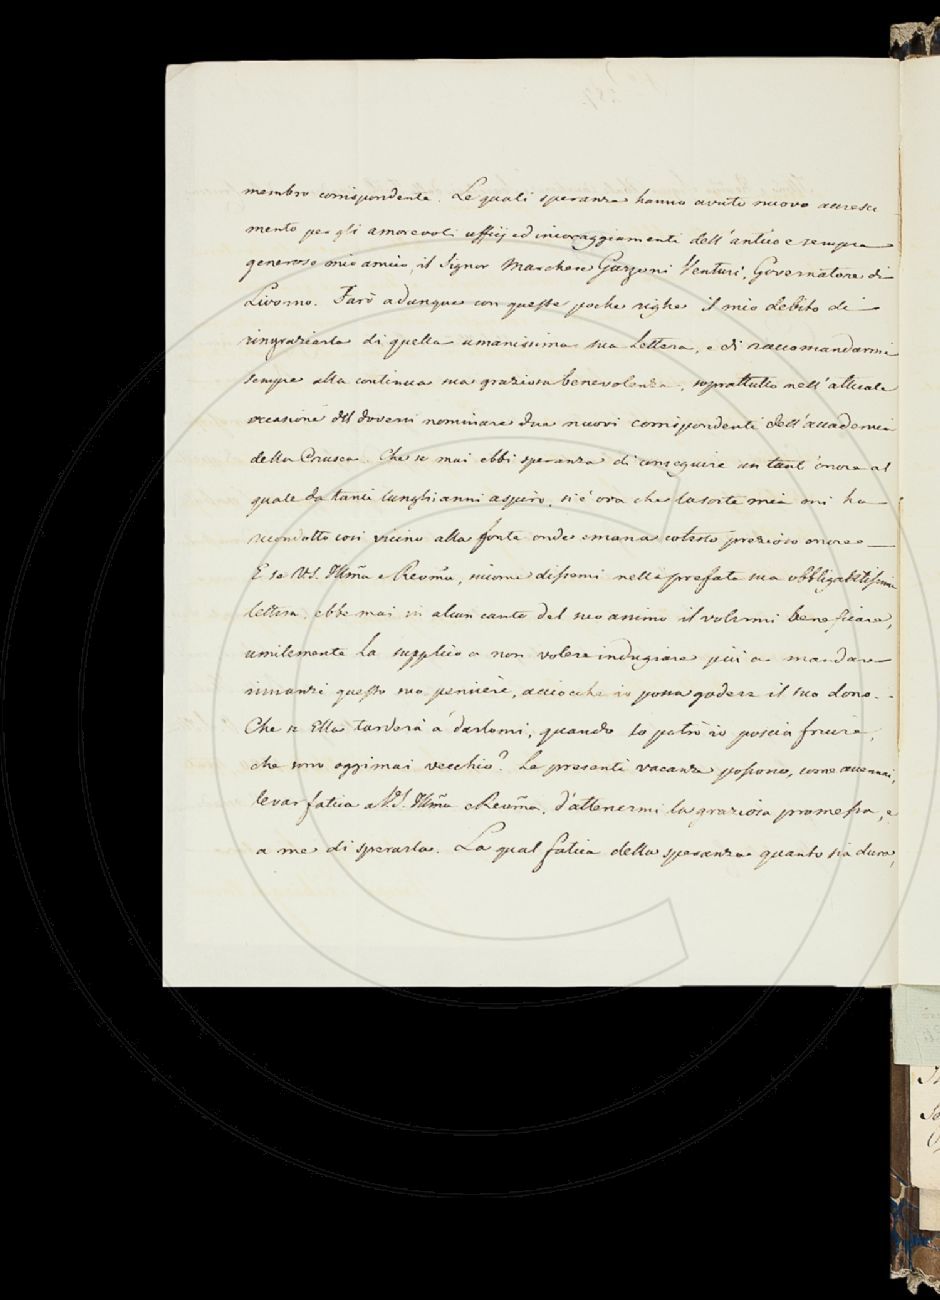 membro corrispondente. Le quali speranze hanno avuto nuovo accresci
mento per gli amorevoli ufficj ed incoraggiamenti dell'antico e sempre
generoso mio amico, il Signor Marchese Garzoni Venturi, Governatore di
Livorno. Farò adunque con queste poche righe il mio debito di
ringraziarla di quella umanissima sua Lettera, e di raccomandarmi
sempre alla continua sua graziosa benevolenza, soprattutto nell'attuale
occasione del doversi nominare due nuovi corrispondenti dell'accademia
della Crusca. Che se mai ebbi speranza di conseguire un tant'onore al
quale da tanti lunghi anni aspiro, si è ora che la sorte mia mi ha
ricondotto così vicino alla fonte onde emana cotesto prezioso onore
E se V.S. Illma e Revma, siccome dissemi nella prefata sua obbligatissima
lettera, ebbe mai in alcun canto del suo animo il volermi beneficare,
umilmente La supplico a non volere indugiare più a mandare
innanzi questo suo pensiere, acciocchè io possa godere il suo dono.
Che se Ella tarderà a darlomi, quando lo potrò io poscia fruire,
che sono oggimai vecchio? Le presenti vacanze possono, come accennai,
levar fatica a V.S. Illma e Revma, d'attenermi la graziosa promessa, e
a me di sperarla. La qual fatica della speranza quanto sia dura,